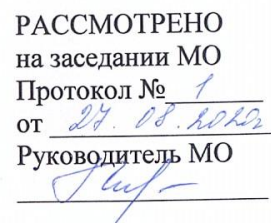 РАССМОТРЕНО
на заседании МО
Протокол № 1
от 27.08.2020г
Руководитель МО